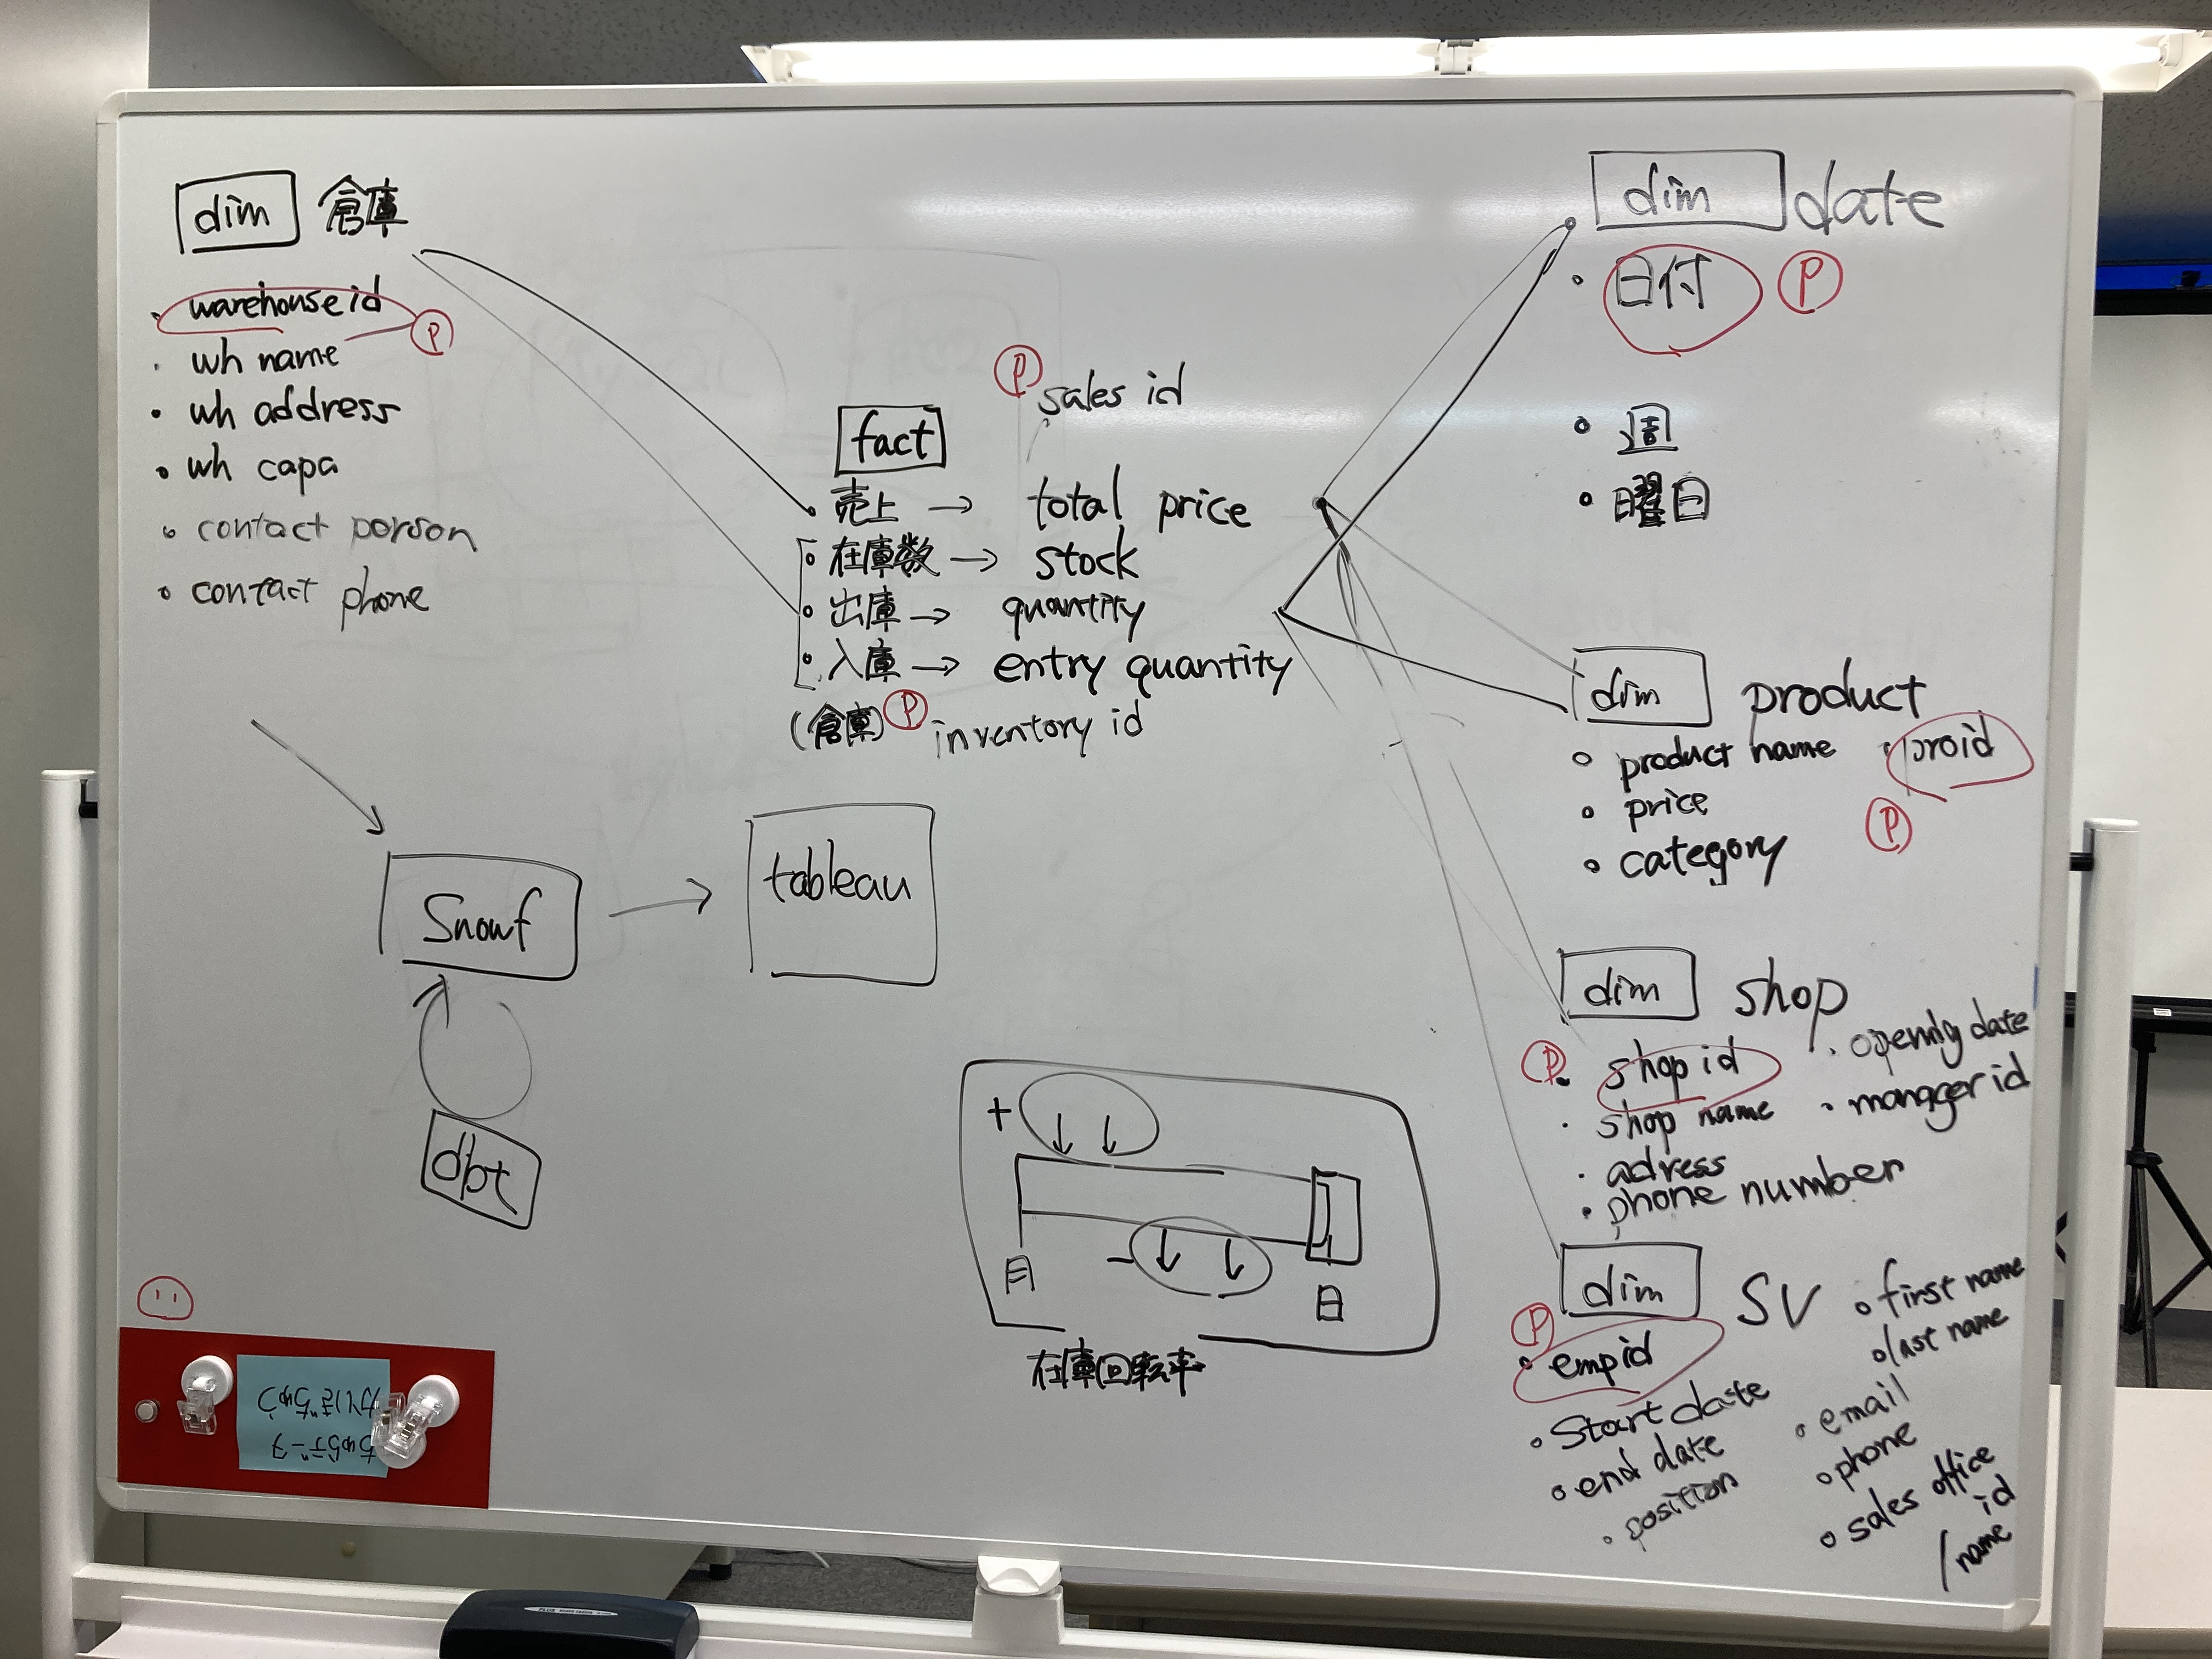 dim 倉庫
・warehouse id Ⓟ
・wh name
・wh address
・wh capa
・contact porson
・contact phone
Ⓟ sales id
fact
・売上 → total price
・在庫数 → stock
・出庫 → quantity
・入庫 → entry quantity
(倉庫) Ⓟ inventory id
Snowf → tableau
dbt
+
-
月
日
在庫回転率
dim date
・日付 Ⓟ
・週
・曜日
dim product
・product name ・proid
・price Ⓟ
・category
dim shop
Ⓟ・shop id ・opening date
・shop name ・manager id
・adress
・phone number
dim SV
Ⓟ
・empid
・Start date
・end date
・position
・first name
・last name
・email
・phone
・sales office id
/name
ちゅらデータ
PLUS